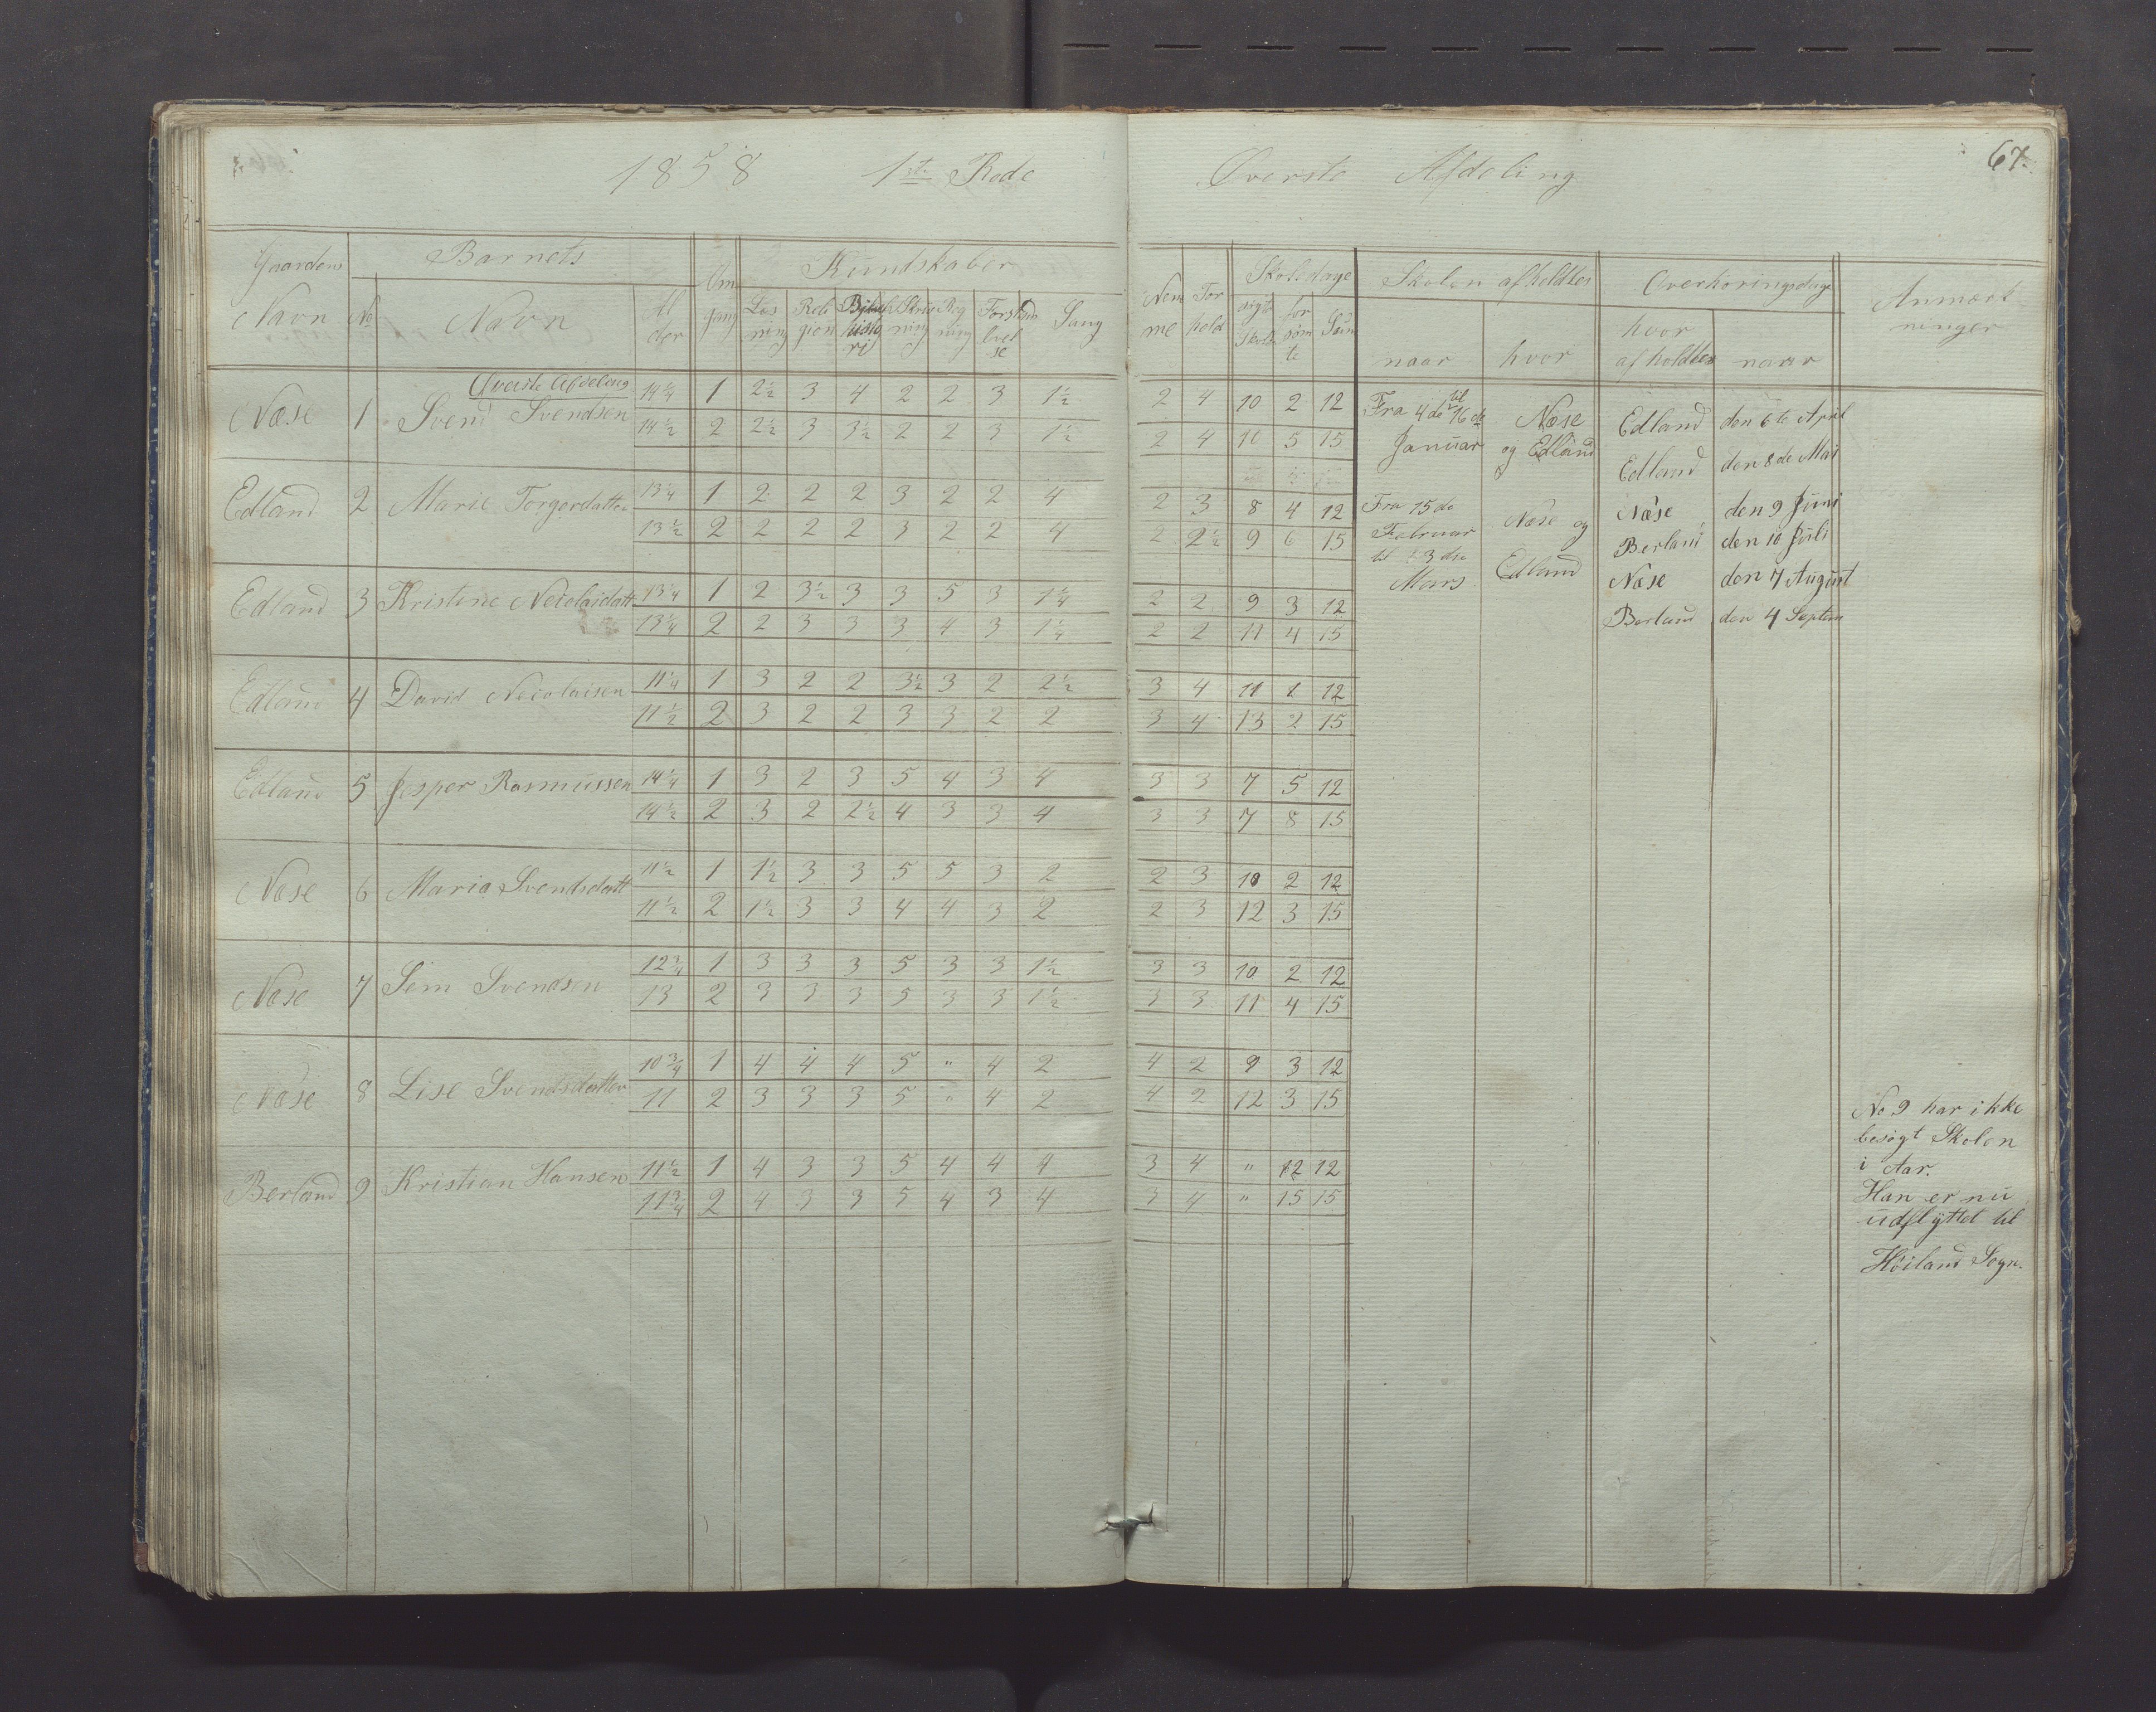 1858 1ste Rode Øverste Afdeling 67.
Gaardens Barnets Om Kundskaber Nem For Skoledage Skolen afholdtes Overhøringsdage Anmærk
Navn No Navn Al gang Læs Reli Bibel Skriv Reg Forstan Sang me hold søgte for Sum naar hvor hvor naar ninger
der ning gion histo ning ning livel Skole søm afholdtes
ri se te
Øverste Afdeling
Næse 1 Svend Svendsen 14 1/4 1 2 1/2 3 4 2 2 3 1 1/2 2 4 10 2 12
14 1/2 2 2 1/2 3 3 1/2 2 2 3 1 1/2 2 4 10 5 15
Edland 2 Marie Torgerdatter 13 1/4 1 2 2 2 3 2 2 4 2 3 8 4 12
13 1/2 2 2 2 2 3 2 2 4 2 2 1/2 9 6 15
Edland 3 Kristine Nicolaidatt 13 1/4 1 2 3 1/2 3 3 5 3 1 1/4 2 2 9 3 12
13 1/4 2 2 3 3 3 4 3 1 1/4 2 2 11 4 15
Edland 4 David Nicolaisen 11 1/4 1 3 2 2 3 1/2 3 2 2 1/2 3 4 11 1 12
11 1/2 2 3 2 2 3 3 2 2 3 4 13 2 15
Edland 5 Jesper Rasmussen 14 1/4 1 3 2 3 5 4 3 4 3 3 7 5 12
14 1/2 2 3 2 2 1/2 4 3 3 4 3 3 7 8 15
Næse 6 Maria Svendsdatt 11 1/2 1 1 1/2 3 3 5 5 3 2 2 3 10 2 12
11 1/2 2 1 1/2 3 3 4 4 3 2 2 3 12 3 15
Næse 7 Sem Svendsen 12 3/4 1 3 3 3 5 3 3 1 1/2 3 3 10 2 12
13 2 3 3 3 5 3 3 1 1/2 3 3 11 4 15
Næse 8 Lise Svendsdatter 10 3/4 1 4 4 4 5 " 4 2 4 2 9 3 12
11 2 3 3 3 5 " 4 2 4 2 12 3 15
Berland 9 Kristian Hansen 11 1/2 1 4 3 3 5 4 4 4 3 4 " 12 12
11 3/4 2 4 3 3 5 4 3 4 3 4 " 15 15
Fra 4de til 16de
Januar
Næse
og Edland
Fra 15de
Februar
til 3die
Mars
Næse og
Edland
Edland den 6te April
Edland den 8de Mai
Næse den 9 Juni
Berland den 10 Juli
Næse den 7 August
Berland den 4 Septem
No 9 har ikke
besøgt Skolen
i Aar.
Han er nu
udflyttet til
Høiland Sogn.